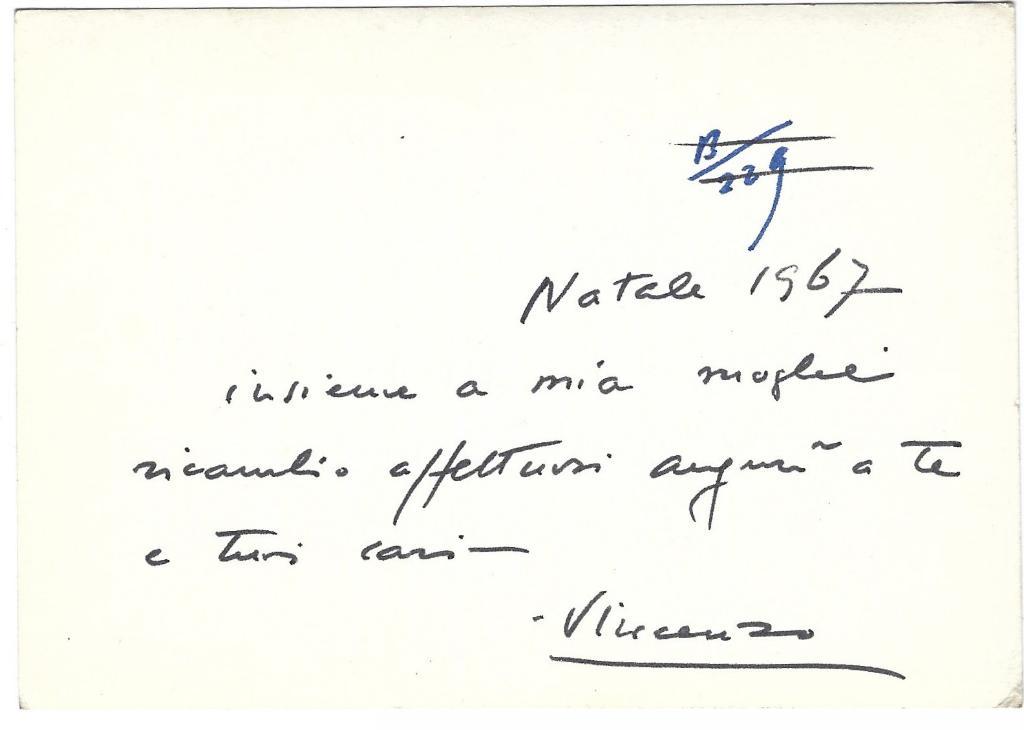 B/229
Natale 1967
insieme a mia moglie
ricambio affettuosi auguri a te
e tuoi cari -
- Vincenzo